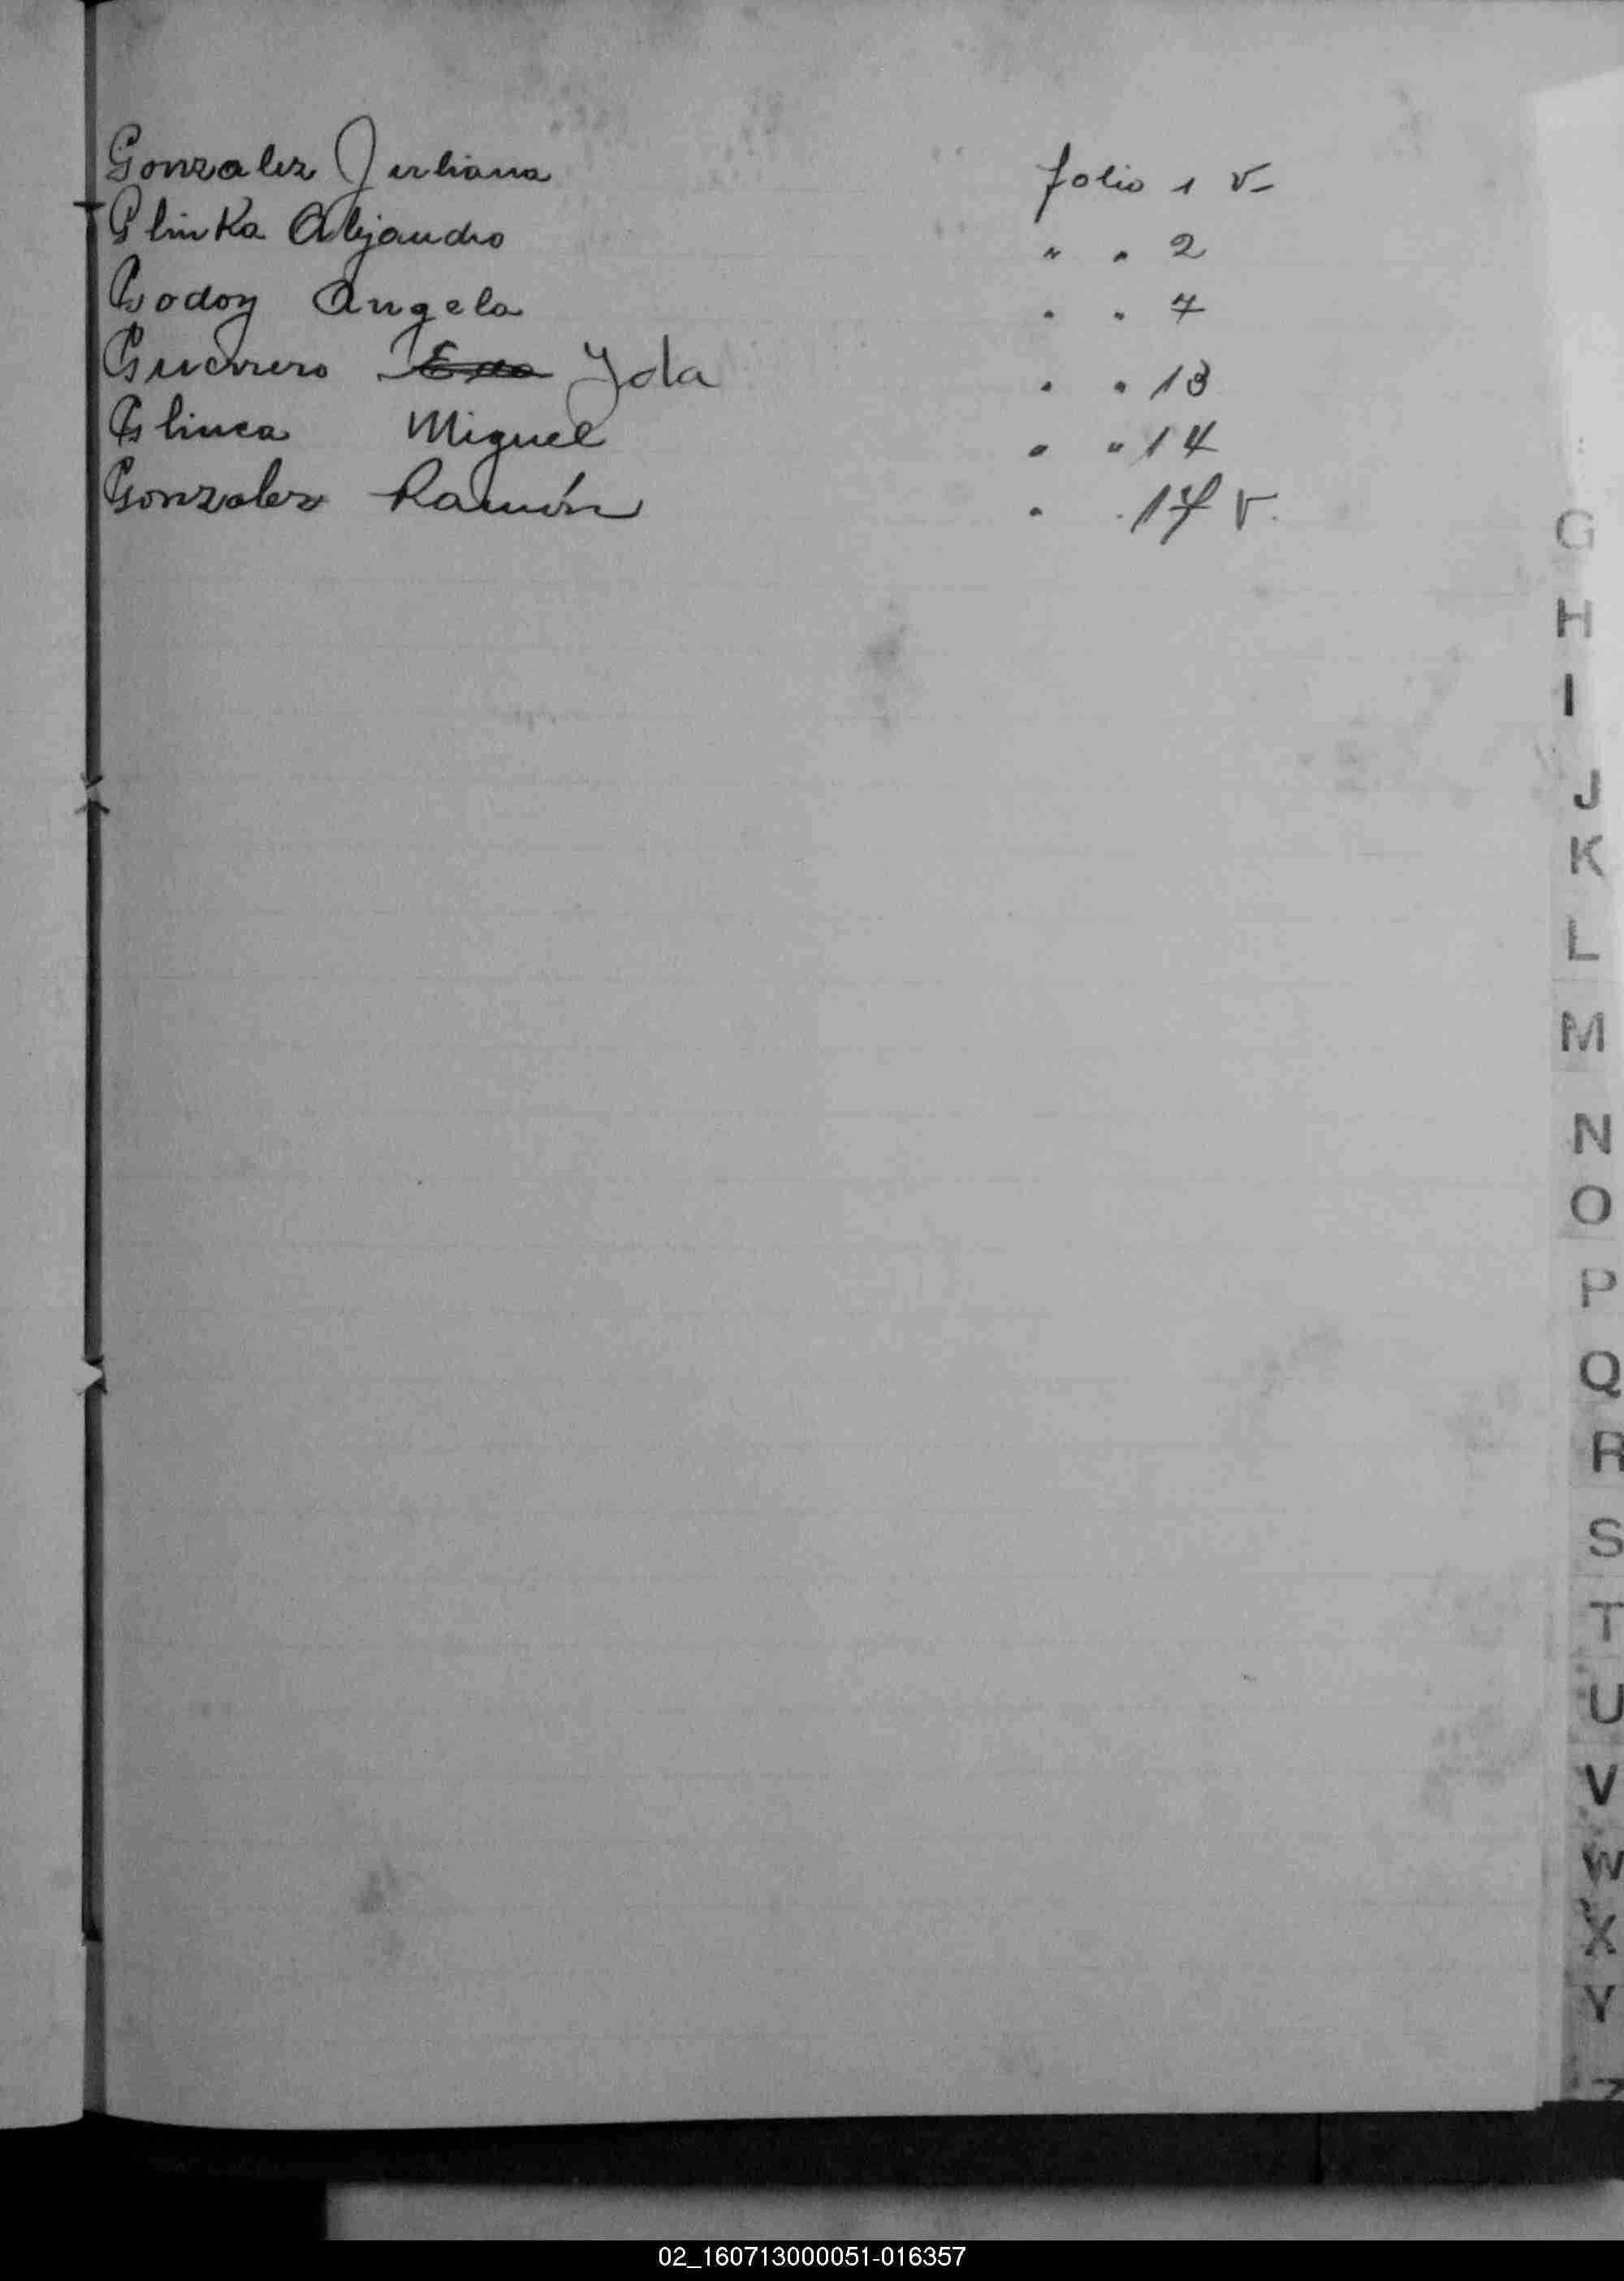 Gonzalez Juliana folio 1 v-
Glinka Alejandro " " 2
Godoy Angela " " 7
Guerrero Yola " " 13
Glinca Miguel " " 14
Gonzalez Ramón " " 17 v.
G
H
I
J
K
L
M
N
O
P
Q
R
S
T
U
V
W
X
Y
Z
02_160713000051-016357